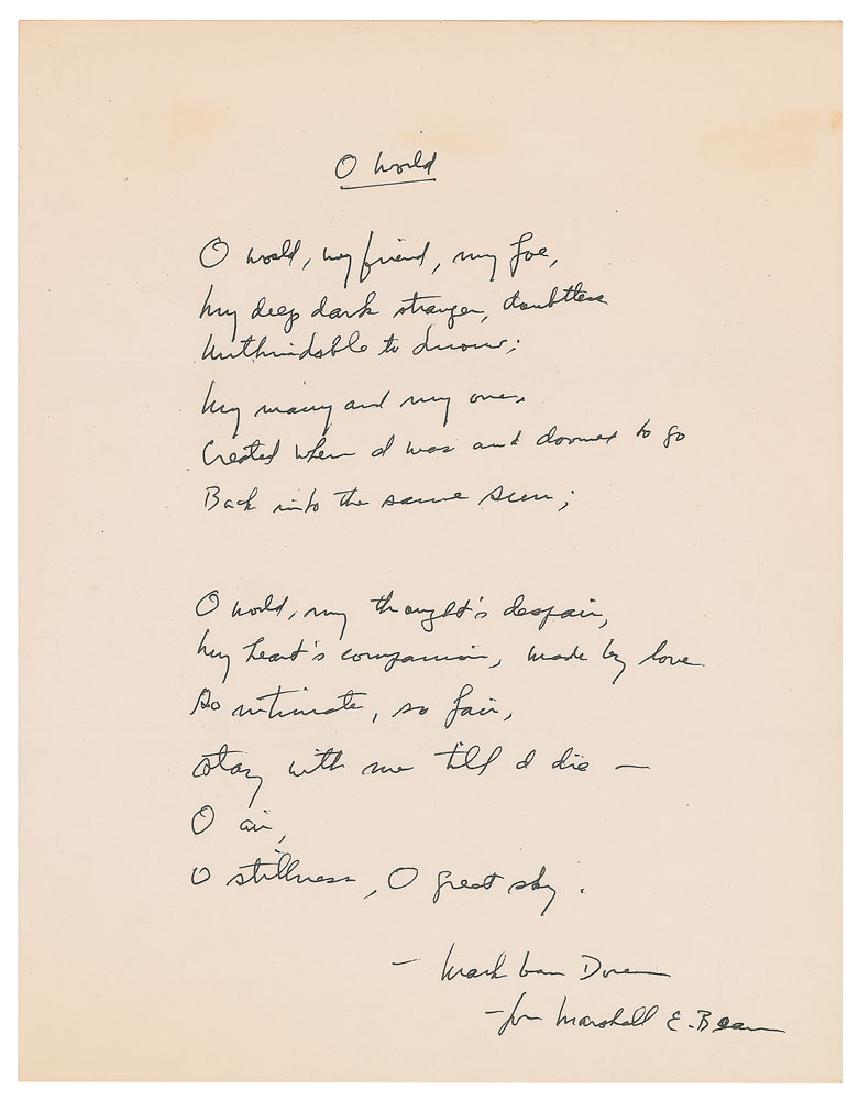 O World
O world, my friend, my foe,
My deep dark stranger, doubtless
Unthinkable to know;
My many and my one,
Created when I was and doomed to go
Back into the same sun;
O world, my thought's despair,
My heart's companion, made by love
So intimate, so fair,
Stay with me till I die —
O air,
O stillness, O great sky.
- Mark Van Doren
- for Marshall E. Bean